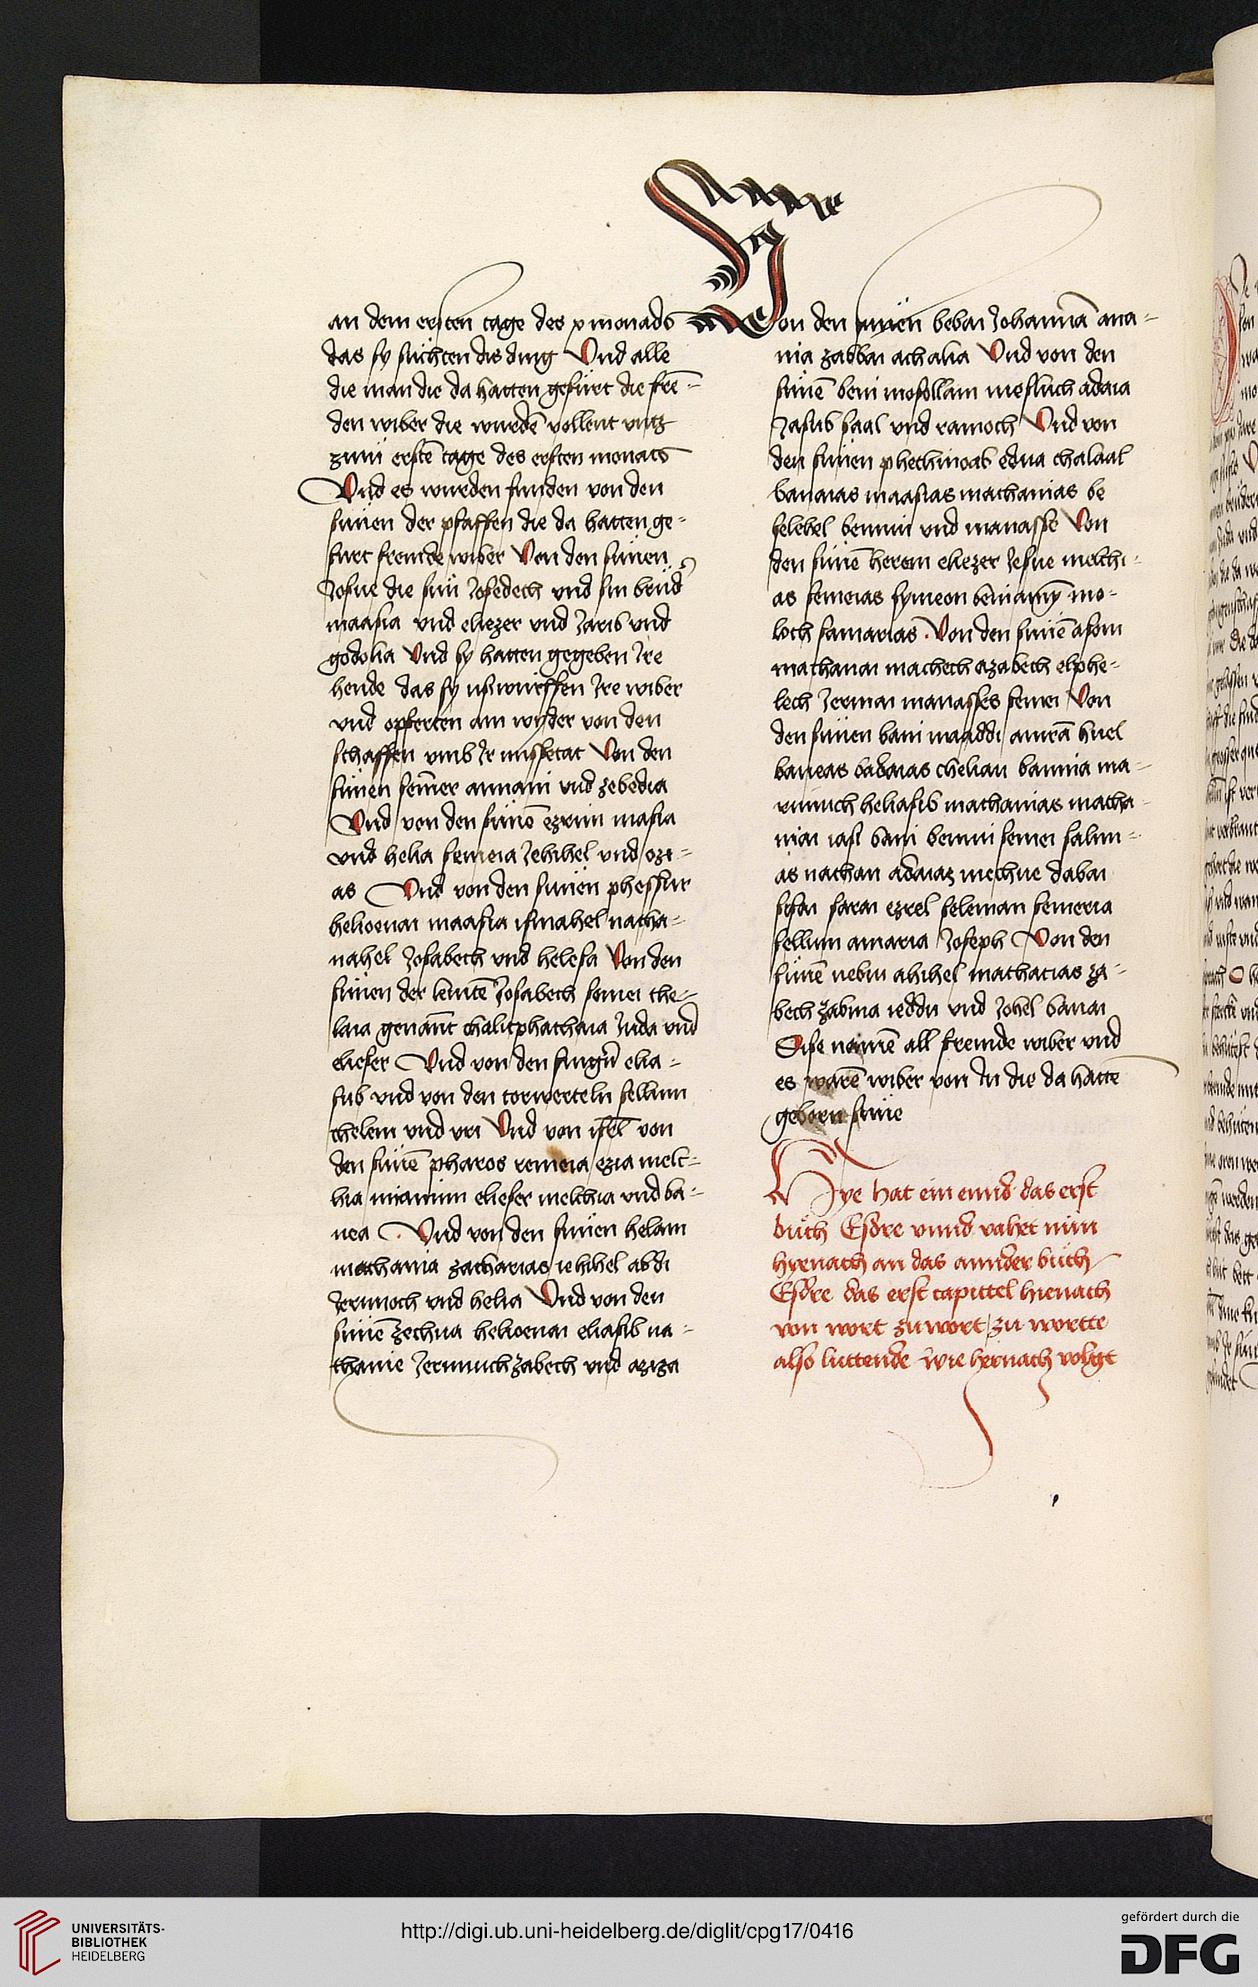 an dem ersten tage des x monads
das sy suͤchten dis ding Vnd alle
die man die da hatten gefuͤrt die frē-
den wiber die wurdē vollent vntz
zuͦm erstē tage des ersten monats
Vnd es wurden funden von den
suͤnen der pfaffen die da hatten ge-
furt fremde wiber Von den suͤnen
Josue die suͤn Josedech vnd sin bruͤd
maasia vnd eliezer vnd Jarib vnd
godolia Vnd sy hatten gegeben Jre
hende das sy uswurffen Jre wiber
vnd opferten ain wyder von den
schaffen vmb Jr missetat Von den
suͤnen semer annani vnd zebedia
Vnd von den suͤnē ezrim masia
vnd helia semeia Jehihel vnd ozi-
as Vnd von den suͤnen phessur
helioenai maasia ismahel natha-
nahel Josabech vnd helesa Von den
suͤnen der leuitē Josabech semei the-
laia genant̄ chalitphathaia Juda vnd
elieser Vnd von den singern̄ elia-
sub vnd von den torwerteln sellum
thelem vnd vri Vnd von isrl̄ von
den suͤnē pharos remeia ezia melc-
hia miamim elieser melchia vnd ba-
nea Vnd von den suͤnen helam
mathania zacharias iehihel abdi
Jerimoch vnd helia Vnd von den
suͤnē zechua helioenai eliasib na-
thanie Jerimuch zabech vnd aziza
Von den suͤnen bebai Johannā ana-
nia zabbai achalia Vnd von den
suͤnē beni mosollam mesluch adaia
Jasub saal vnd ramoch Vnd von
den suͤnen phethmoab edua chalaal
banaias maasias mathanias be
selehel bennui vnd manasse Von
den suͤnē herem eliezer Jesue melchi-
as semeias symeon beniamȳ mo-
loch samarias Von den suͤnē asom
mathanai machech azabech elphe-
lech Jermai manasses semei Von
den suͤnen bani maaddi amrā huel
baneas badaias cheliau bannia ma-
rimuch heliasib mathanias matha-
niai iasi bani bennui semei salim-
as nathan adaias mechue dabai
sisai sarai ezrel seleman semeria
sellum amaria Joseph Von den
suͤnē nebui ahihel mathatias za-
bech zabina ieddu vnd Johel banai
Dise namē all fremde wiber vnd
es warē wiber von Jn die da hatte
geborn suͤne
Hye hat ein ennd das erst
buͦch Esdre vnnd vahet nuͤn
hyenach an das annder buͦch
Esdre das erst capittel hienach
von wort zu wort / zu wortte
also luttende wie hernach volgt
UNIVERSITÄTS-
BIBLIOTHEK
HEIDELBERG
http://digi.ub.uni-heidelberg.de/diglit/cpg17/0416
gefördert durch die
DFG